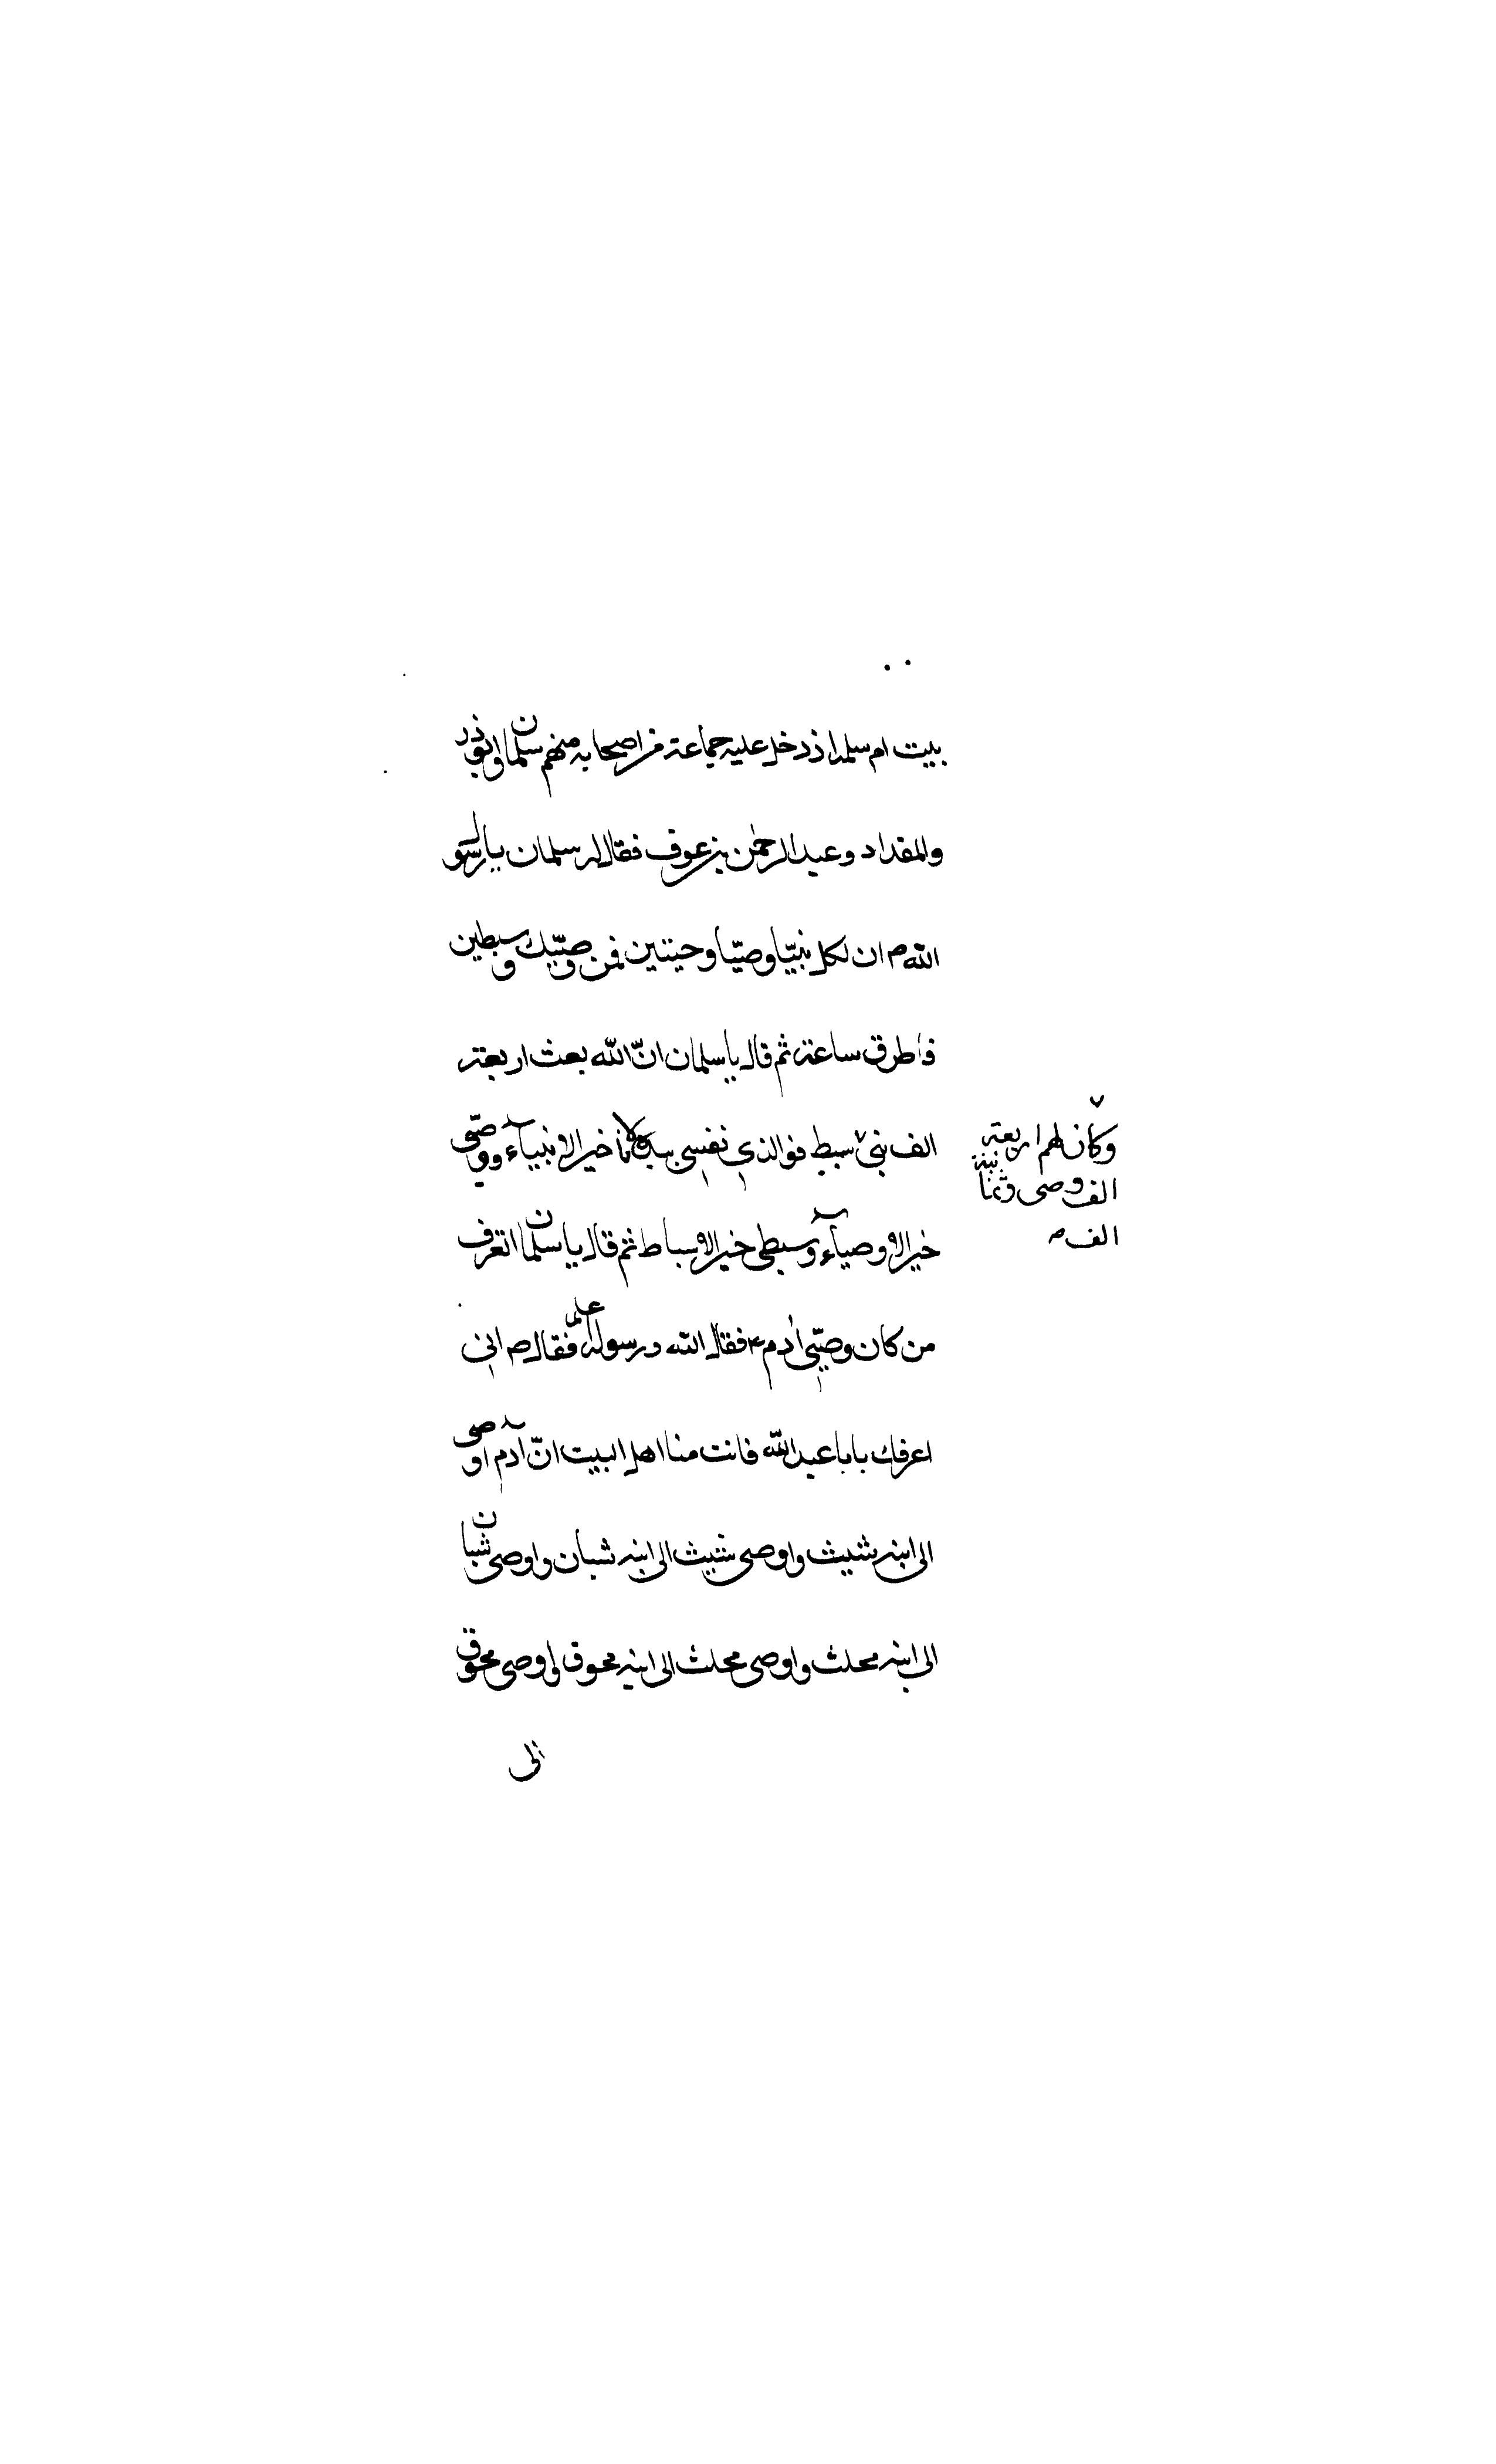 بيت ام سلمه اذ دخل عليه جماعة من اصحابه منهم سلمان وابوذر
والمقداد وعبد الرحمن بن عوف فقال له سلمان يا رسول
الله ص ان لكل نبيّا وصيّا وسبطين فمن وصيّك وسبطين
فاطرق ساعة ثم قال يا سلمان انّ الله بعث اربعة
الف نبى سبط فوالذي نفسي بيده لانا خير الانبيآء ووصيّى
وكان لهم اربعة
الف وصى وثمانية
الف ص
خير الاوصيآء وسبطى خير الاسباط ثم قال يا سلمان اتعرف
من كان وصيّى آدم ع فقال الله ورسوله اعلم فقال ص انى
اعرفك يابا عبد الله فانت منا اهل البيت انّ آدم اوصى
الى ابنه شيث واوصى شيث الى ابنه شبان واوصى شبان
الى ابنه محلث واوصى محلث الى ابنه محوق واوصى محوق
الى